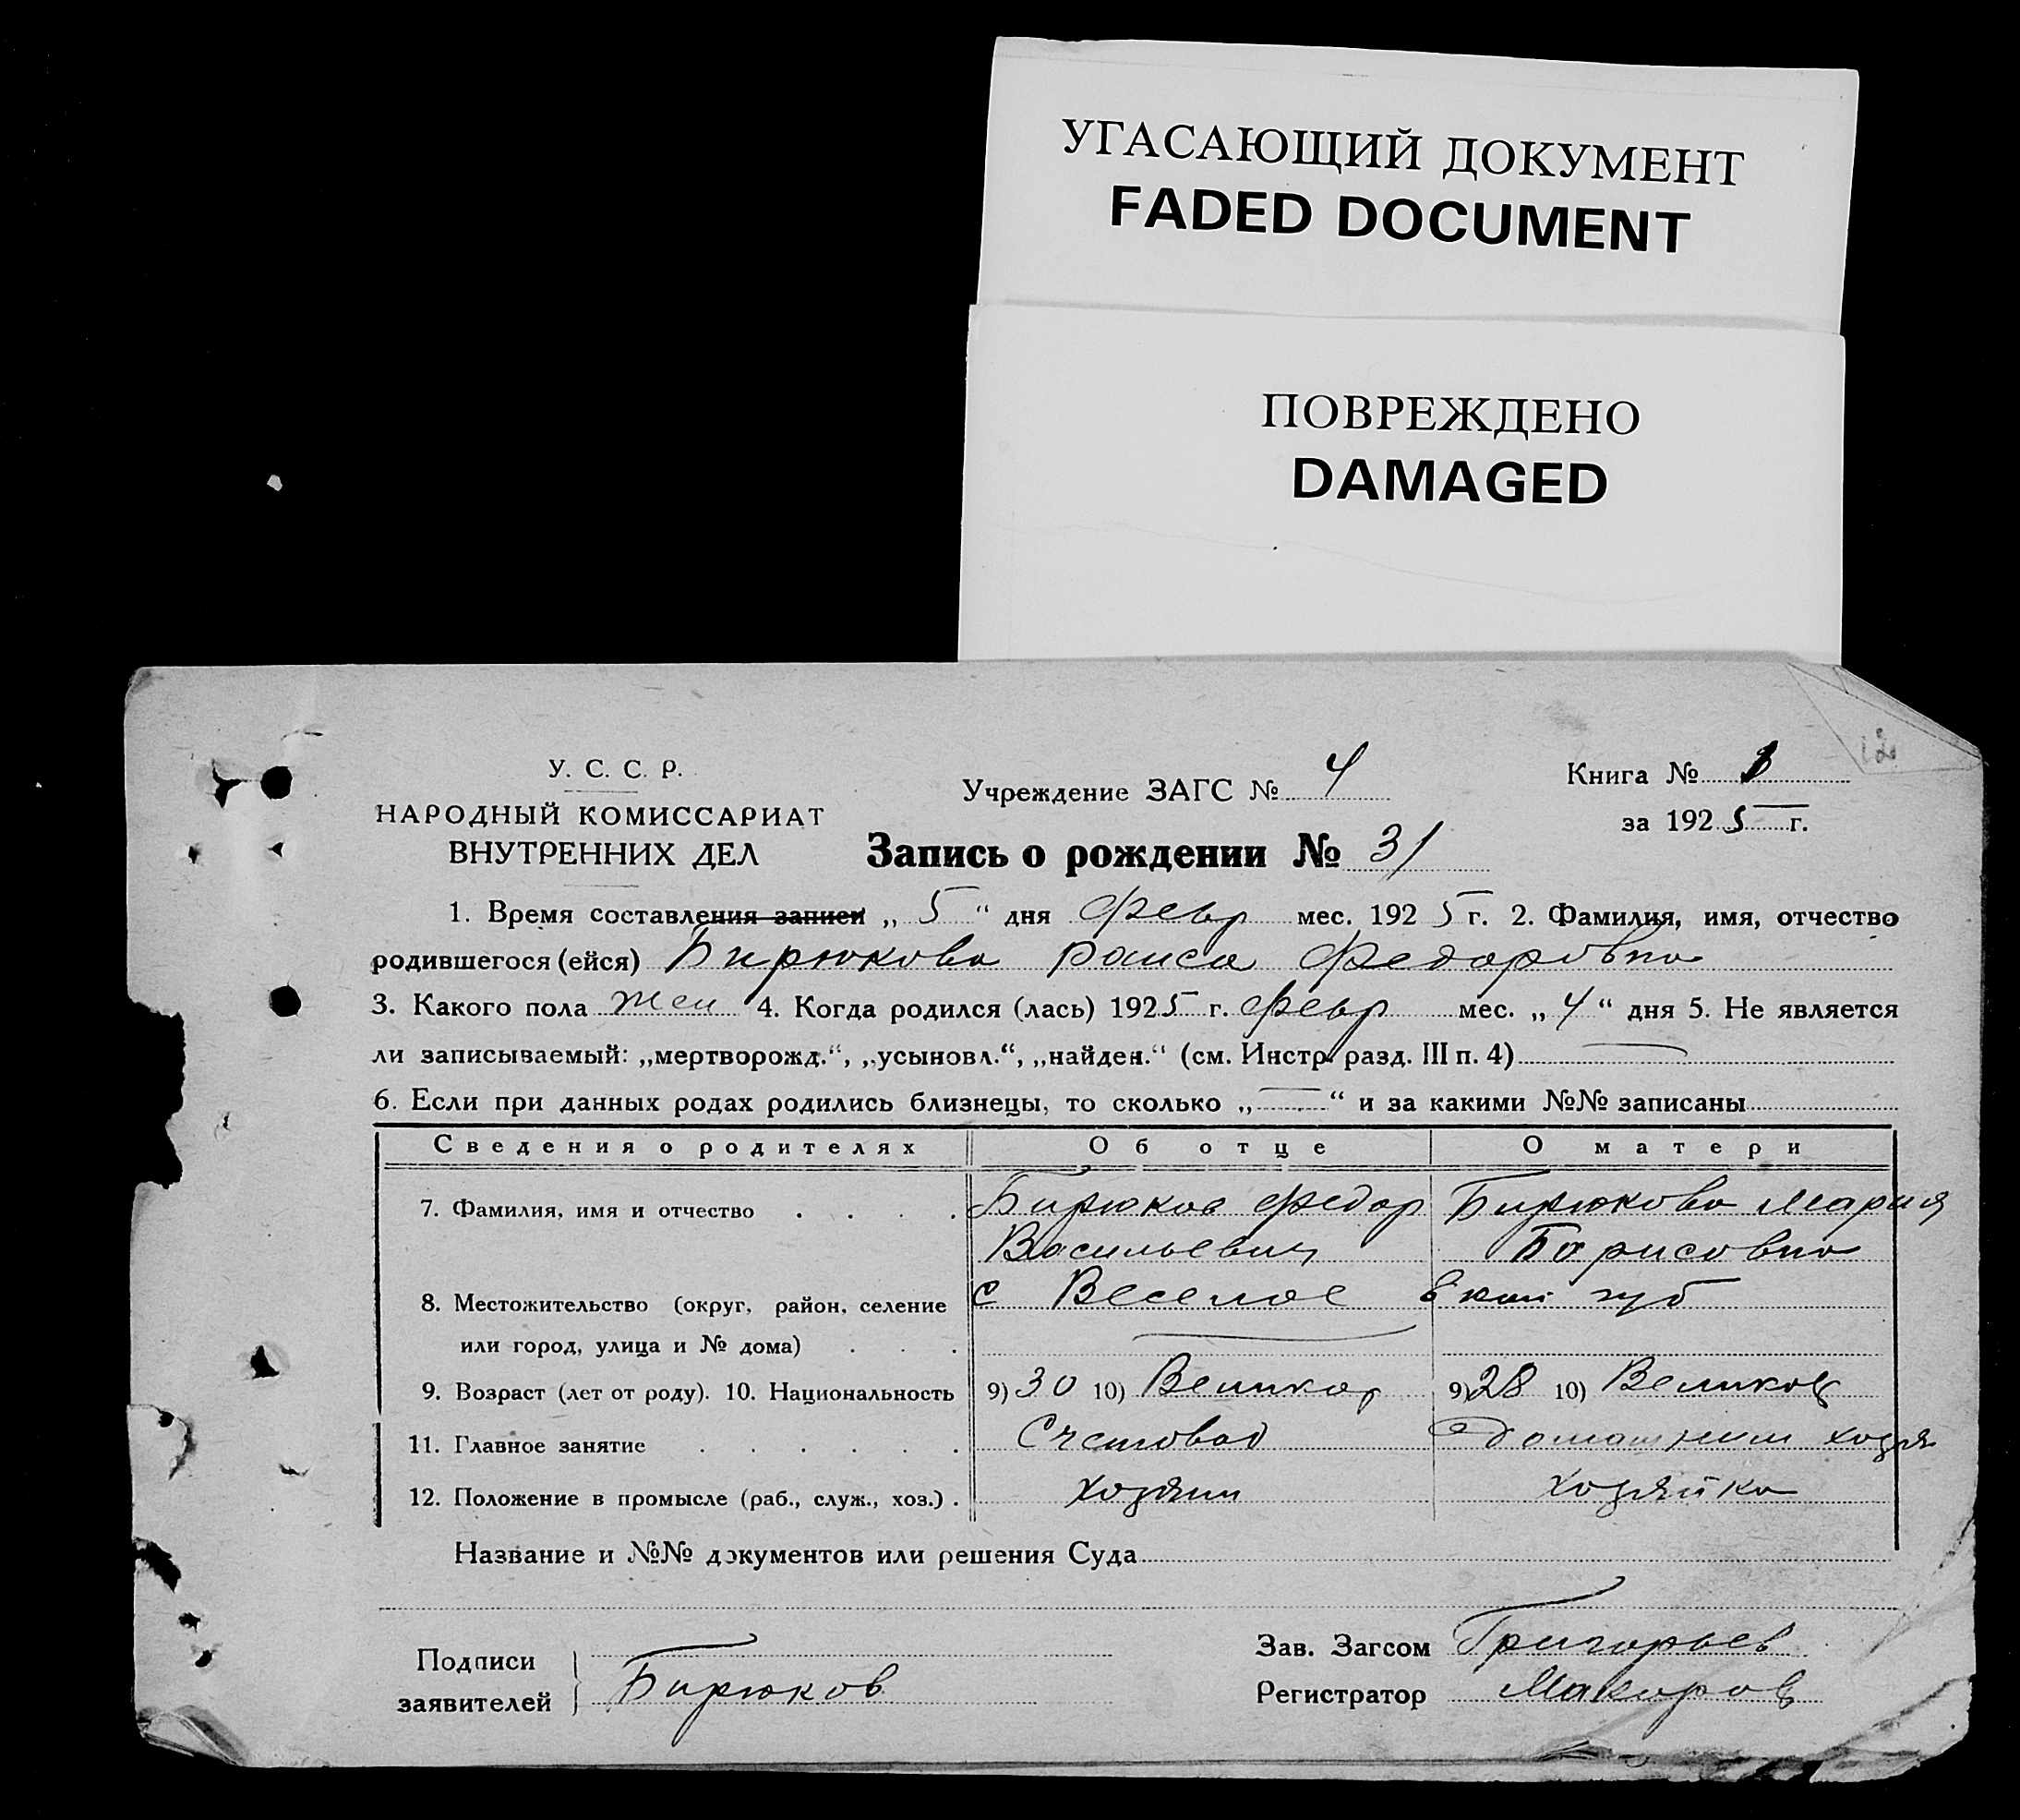 УГАСАЮЩИЙ ДОКУМЕНТ
FADED DOCUMENT
ПОВРЕЖДЕНО
DAMAGED
12
У. С. С. Р.
НАРОДНЫЙ КОМИССАРИАТ
ВНУТРЕННИХ ДЕЛ
Учреждение ЗАГС № 4
Книга №
за 1925 г.
Запись о рождении № 31
1. Время составления записи „ 5 “ дня февр мес. 1925 г. 2. Фамилия, имя, отчество
родившегося (ейся) Бирюкова Раиса Федоровна
3. Какого пола жен 4. Когда родился (лась) 1925 г. февр мес. „ 4 “ дня 5. Не является
ли записываемый: „мертворожд.“, „усыновл.“, „найден.“ (см. Инстр. разд. III п. 4)
6. Если при данных родах родились близнецы, то сколько „ — “ и за какими №№ записаны
Сведения о родителях Об отце О матери
7. Фамилия, имя и отчество Бирюков Федор Бирюкова Мария
Васильевич Борисовна
8. Местожительство (округ, район, селение с Веселое губ
или город, улица и № дома)
9. Возраст (лет от роду). 10. Национальность 9) 30 10) Великор 9) 28 10)
11. Главное занятие Счетовод хозя
12. Положение в промысле (раб., служ., хоз.) хозяин хозяйка
Название и №№ документов или решения Суда
Подписи
заявителей Бирюков
Зав. Загсом Григорьев
Регистратор Макаров